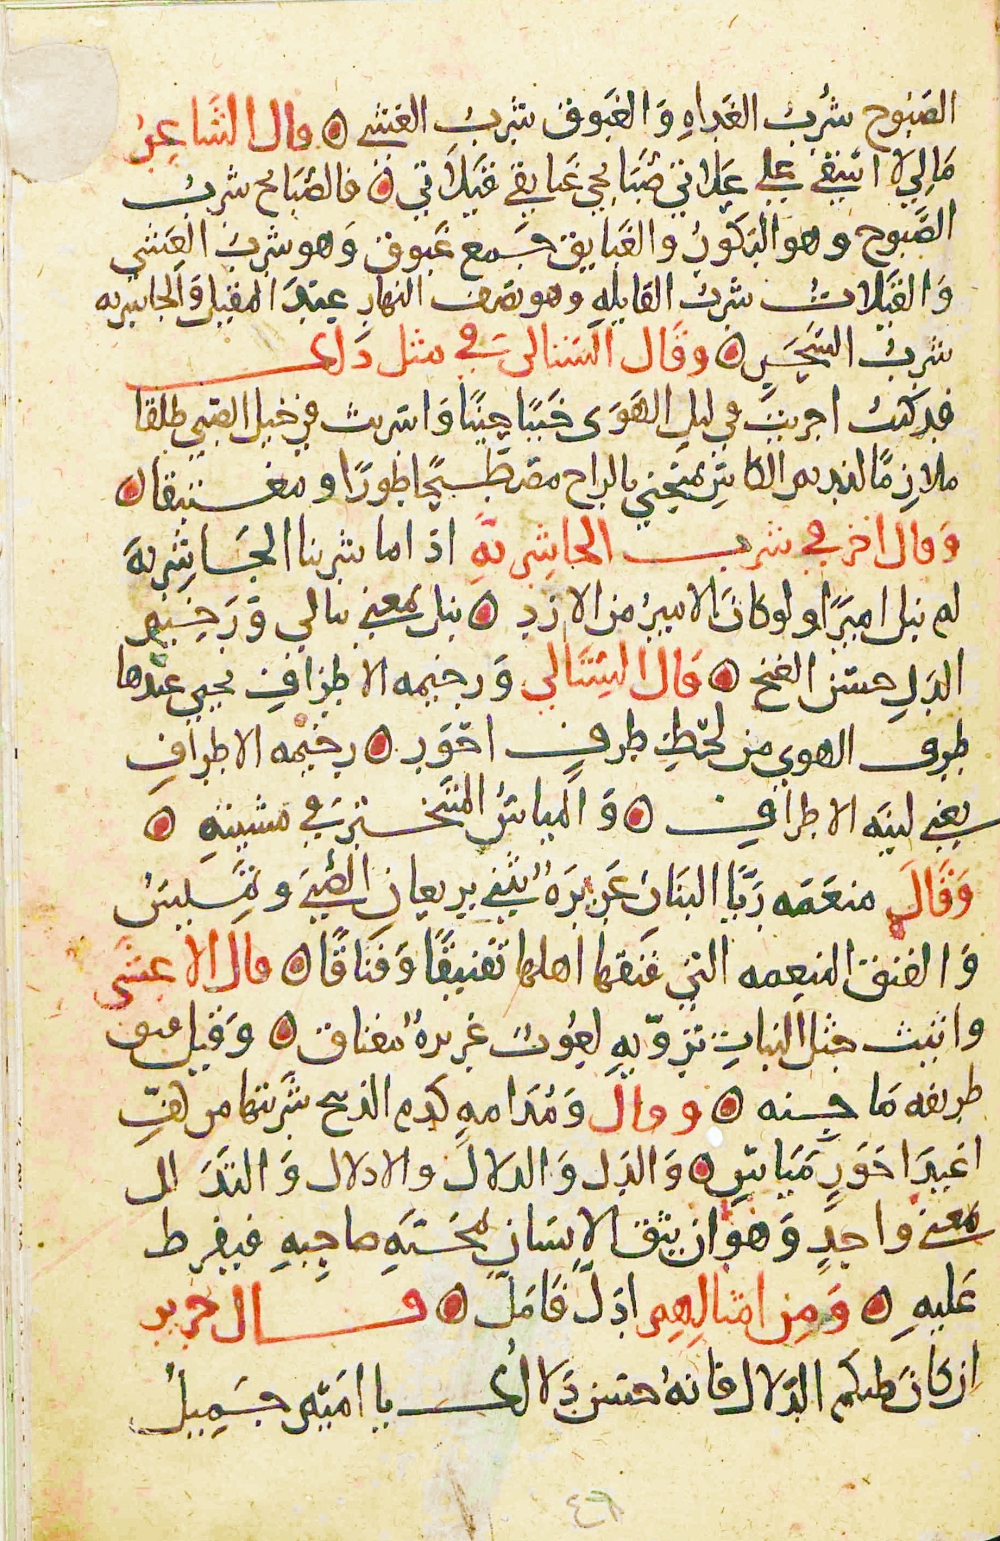 الصَبُوح شُربُ الغَداهِ وَ الغَبوق شربُ العشي ۞ وقال الشَاعِرُ
مَا لِي لا اسَقي علي عَلاتي صَبَايحي غَبايقي قَيَلاتي ۞ فالصَبَايح شربُ
الصَّبوح وهو البَكورُ والغَبايق جَمع غَبوق وَهو شربُ العَشي
وَالقَيلاتُ شربُ القايلهِ وهو نصف النهارِ عِندَ المقيل وَالجاشريه
شربُ السَحَرِ ۞ وقال الستالي في مثل ذلك
قد كنتُ اجريتُ في ليلِ الهَوَى خَبَبًا حِينًا وَاسريت في خيل الصبي طلقا
ملازمًا لنديم الكاس يمنحني بالراح مصطبحًا طورًا و مغتبقا ۞
وَقال اخر في شرب الجاشريةِ اذا ما شربنا الجَاشِريهَ
لم نبل اميرًا ولو كانَ الاميرُ من الازدِ ۞ نبل بمعنى نبالي وَ رَخيم
الدَلِ حسَن الغنج ۞ قال السِتَالي وَ رخيمه الاطرافِ يحيي عندها
طرف الهوى من لحظِ طرفٍ احَوَرِ ۞ رخيمه الاطرافِ
يعني لينَه الاطرافِ ۞ وَ المياسُ المتبَختر في مشيتهِ ۞
وَقَالَ منعَمَه رَيَّا البَنَانِ عَزيزَهٌ يثني بريعانِ الصِبي وتميسُ
وَ الفنق المنعمه التي فَنَقها اهلها تفنيقًا وَفناقًا ۞ قال الاعشَى
واثيث جثل النباتِ تروّيهِ لعُوبٌ غريرةٌ مفناق ۞ وَقيل فنق
ظريفه مَاجنه ۞ وقال وَمُدَامهِ كدم الذبيح شَربتها من كفِّ
اغيدَ احَوَرٍ مَيَاسِ ۞ وَالدَل وَالدلال والادلال وَالتدَلل
بمعنى واحدٍ وَهو ان يثق الانِسَان بمَحَبَتهِ صاحِبهِ فيفرط
عَليهِ ۞ وَمِن امثالِهِم ادَلَّ فَامَلَّ ۞ قال جرير
ان كانَ طبكم الدَلال فانهُ حسَن دَلالُك يا امَيم جَميلُ
٤٦